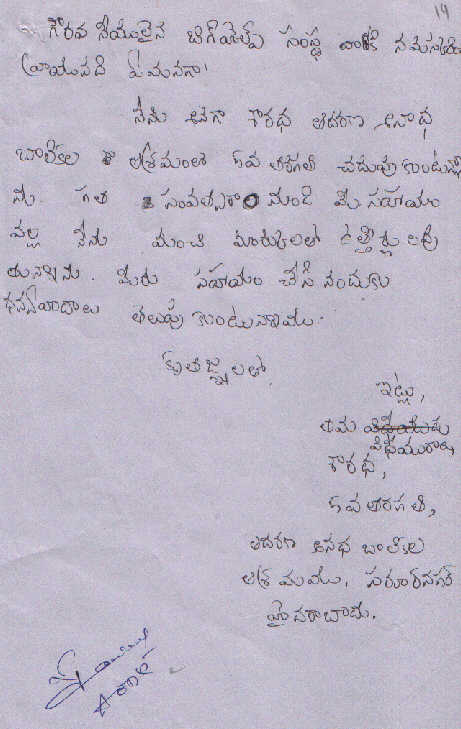 14
గౌరవ నీయులైన బిగ్‌హెల్ప్ సంస్థ వారికి నమస్కరించి
వ్రాయునది ఏమనగా
నేను అనగా శారధ ఆదరణ అనాధ
బాలికల ఆశ్రమంలో 5వ తరగతి చదువు కుంటున్నా
ను. గత 2 సంవత్సరాల నుండి మీ సహాయం
వల్ల నేను మంచి మార్కులలో ఉత్తీర్ణు లవు
తున్నాను. మీరు సహాయం చేసి నందుకు
ధన్యవాదాలు తెలుపు కుంటున్నాము.
కృతజ్ఞ్నలతో
ఇట్లు,
తమ
విధేయురాలు
శారధ,
5వ తరగతి,
ఆదరణ అనాధ బాలికల
ఆశ్రమము, సరూర్‌నగర్
హైదరాబాదు.